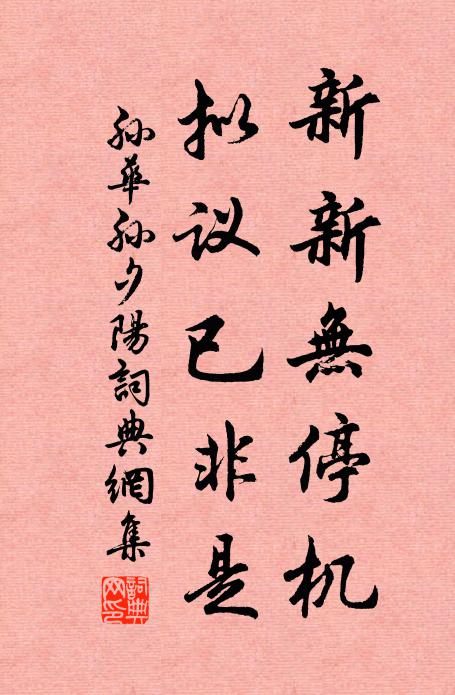 新新無停机
拟议已非是
孙华孙夕陽詞典網集
詞典网印